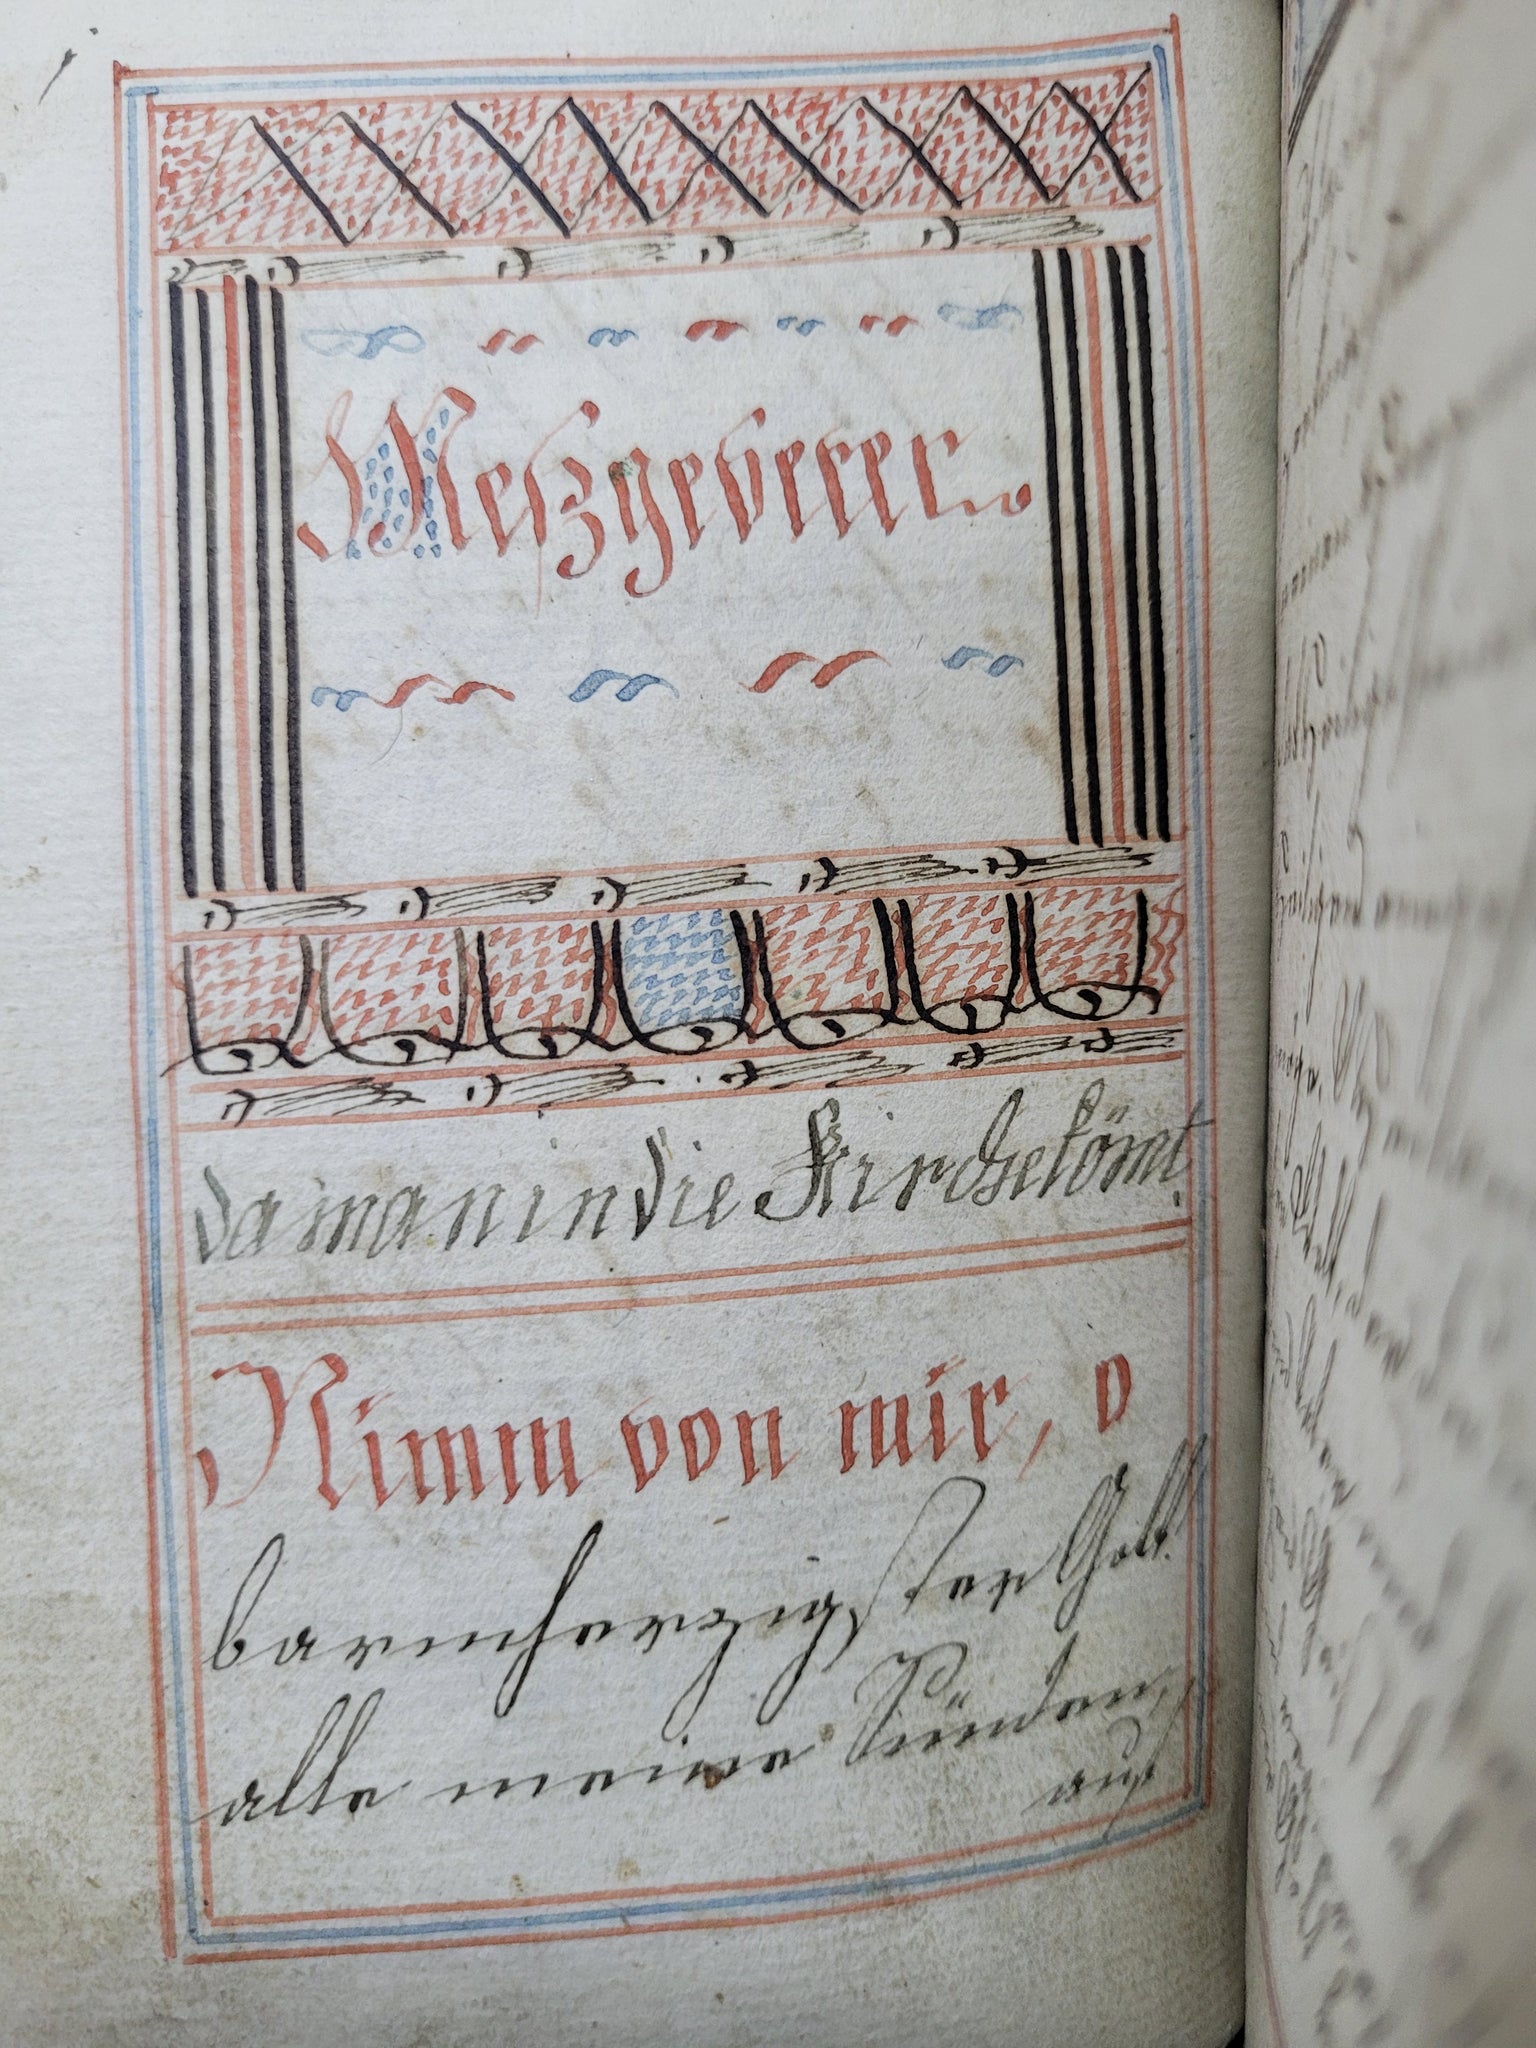 Meßgeverer
da man in die Kirche kömt
Nimm von mir, o
barmherzigster Gott
alle meine Sünden,
auf